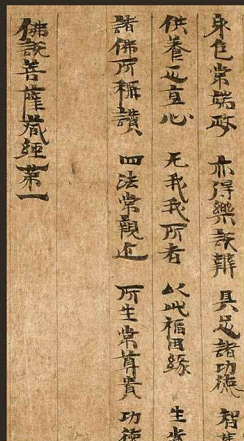 身色常端政 亦得樂說辯 具足諸功德 智
供養正直心 无我我所者 以此福田緣 生
諸佛所稱讚 四法常親近 所生常尊貴 功德
佛說菩薩藏經第一